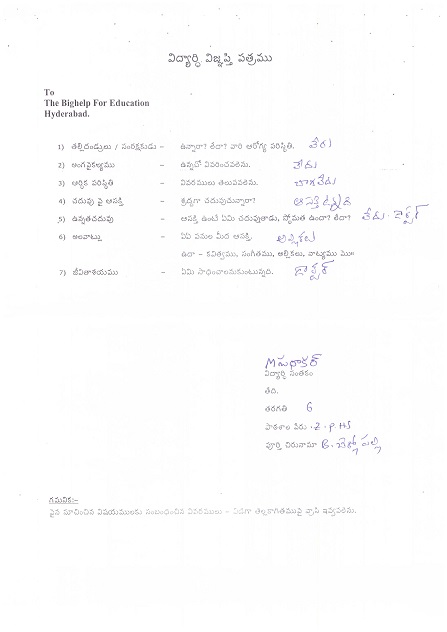 విద్యార్ధి విజ్ఞప్తి పత్రము
To
The Bighelp For Education
Hyderabad.
1) తల్లిదండ్రులు / సంరక్షకుడు – ఉన్నారా? లేదా? వారి ఆరోగ్య పరిస్థితి. లేరు
2) అంగవైకల్యము – ఉన్నదో వివరించవలెను. లేదు
3) ఆర్ధిక పరిస్థితి – వివరములు తెలుపవలెను. బాగలేదు
4) చదువు పై ఆసక్తి – శ్రద్ధగా చదువుచున్నారా? ఆసక్తి
5) ఉన్నతచదువు – ఆసక్తి ఉంటే ఏమి చదువుతాడు, స్తోమత ఉందా? లేదా? లేదు.
6) అలవాట్లు – ఏఏ పనుల మీద ఆసక్తి.
ఉదా – కవిత్వము, సంగీతము, అల్లికలు, నాట్యము మొ॥
7) జీవితాశయము – ఏమి సాధించాలనుకుంటున్నది. డాక్టర్
మనోకర్
విద్యార్ధి సంతకం
తేది.
తరగతి 6
పాఠశాల పేరు . Z.P.HS
పూర్తి చిరునామా B.
గమనిక:–
పైన సూచించిన విషయములకు సంబంధించిన వివరములు – విడిగా తెల్లకాగితముపై వ్రాసి ఇవ్వవలెను.